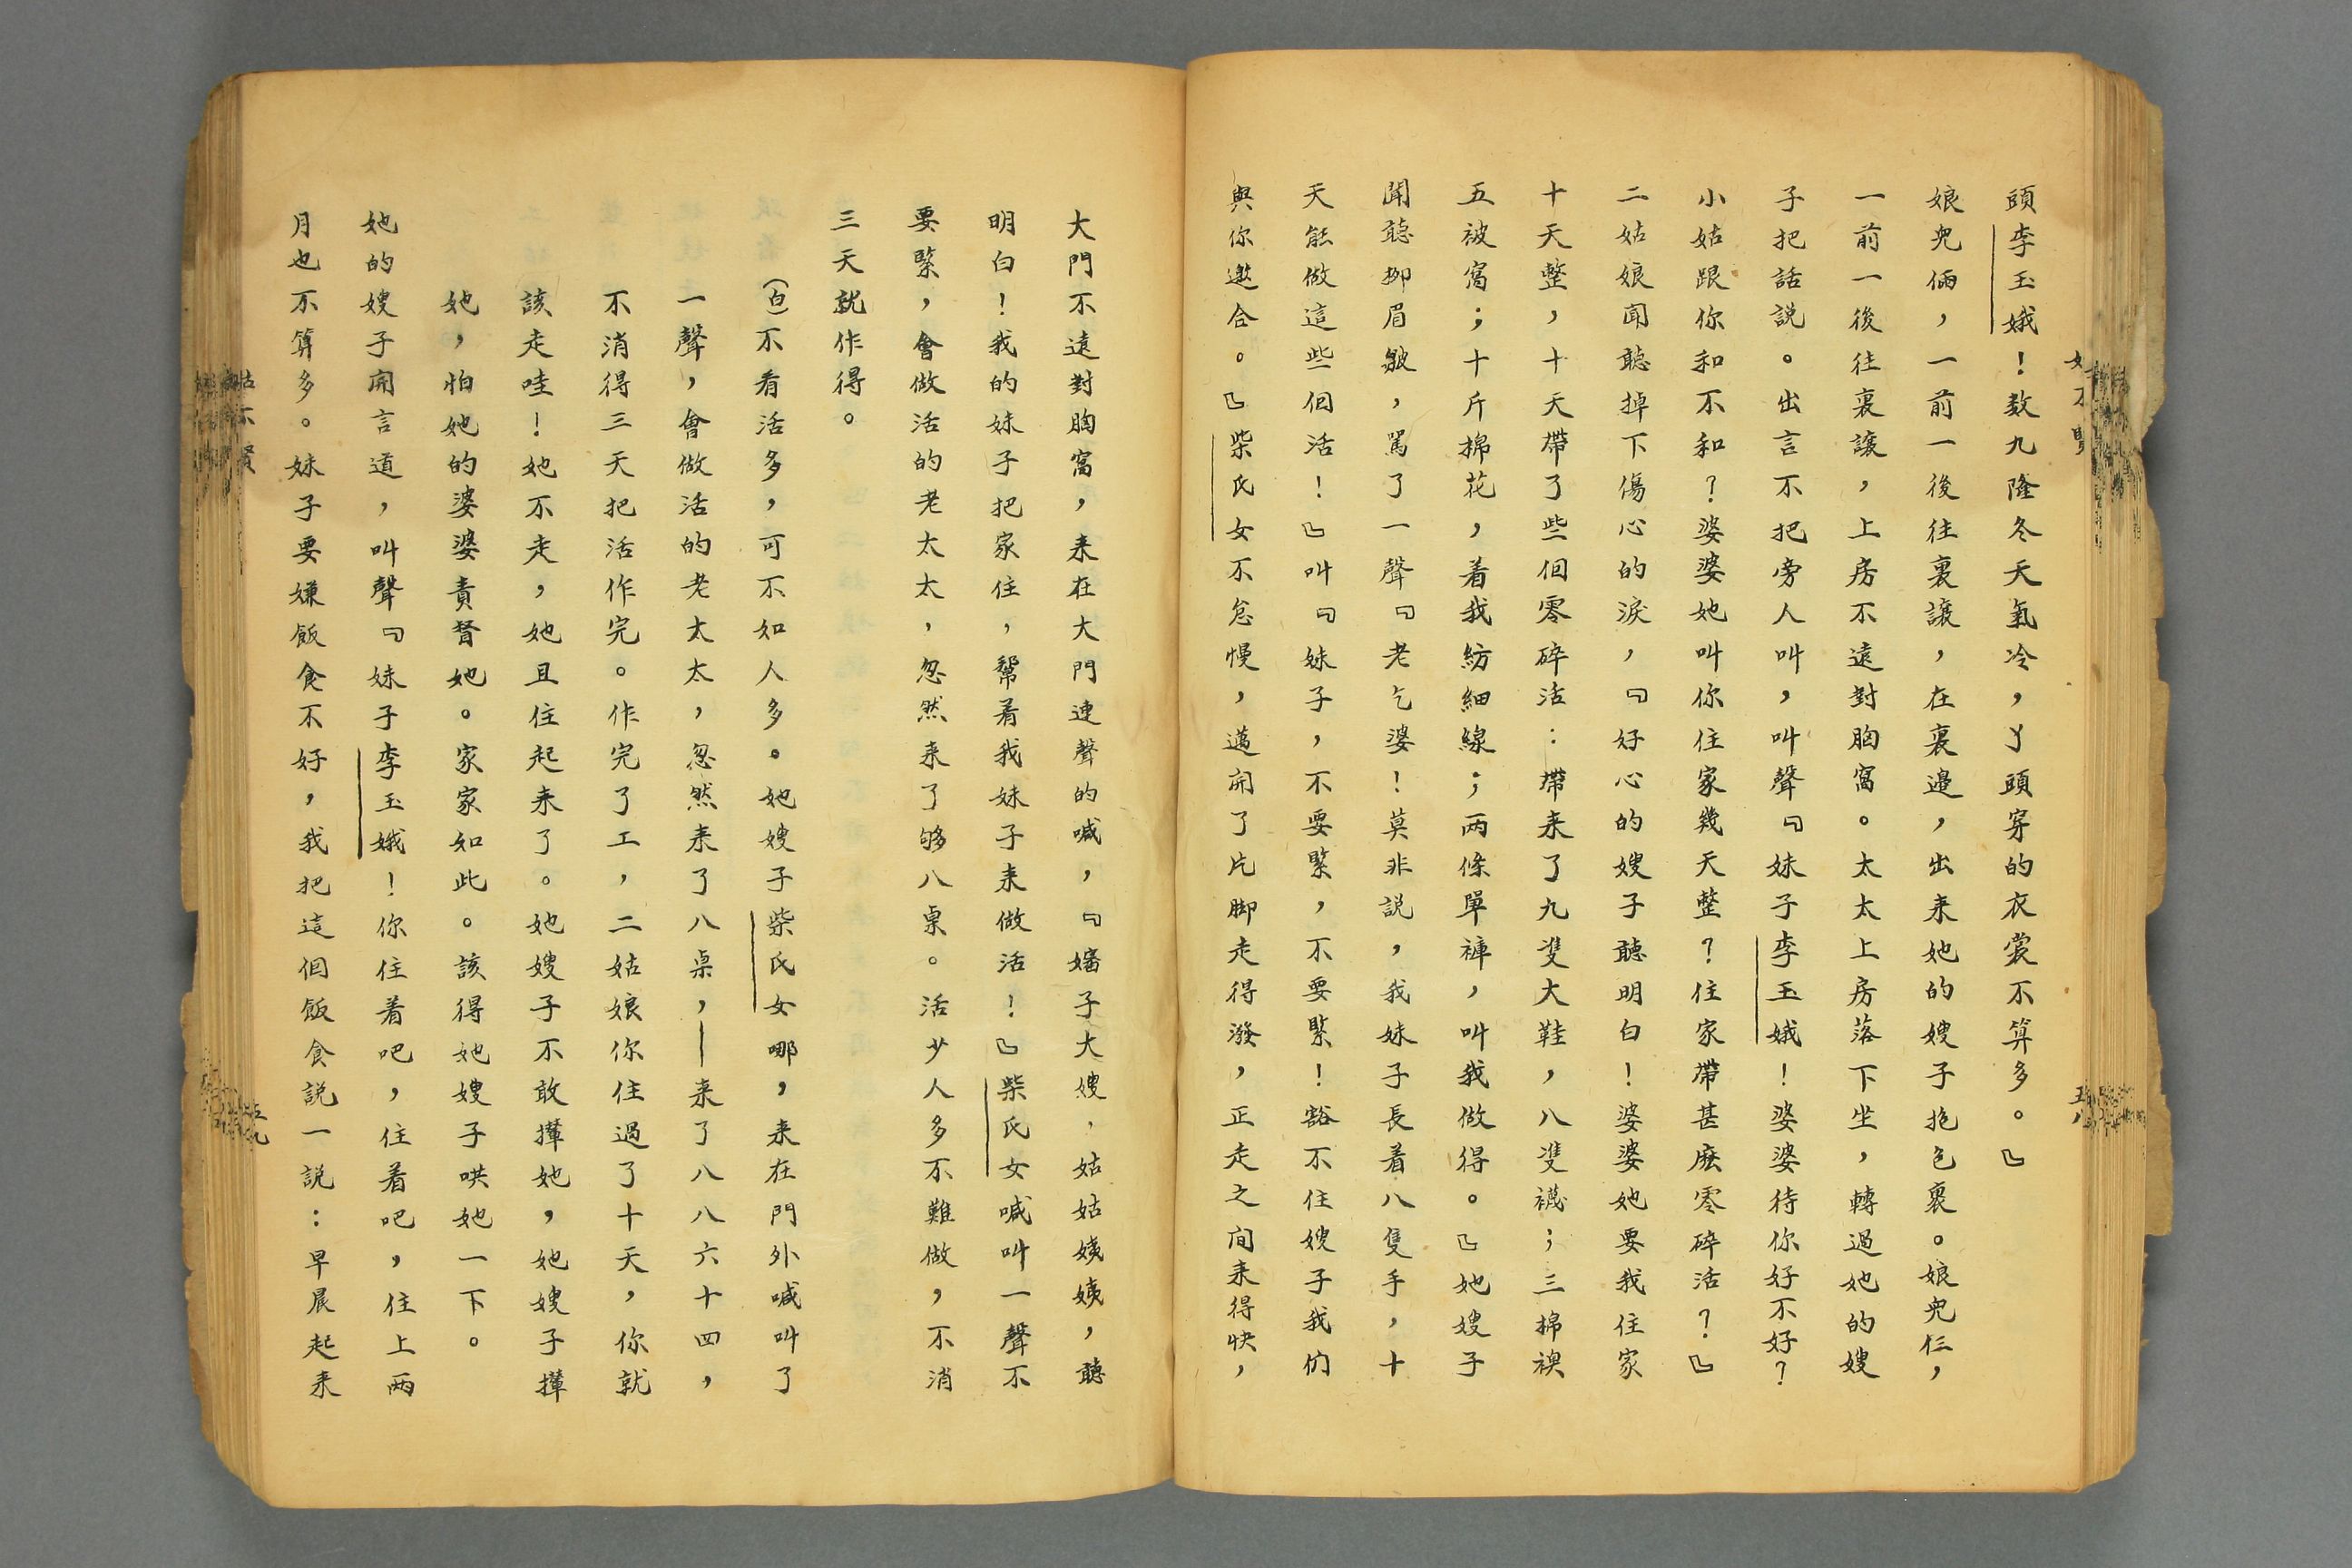 頭李玉娥！数九隆冬天氣冷，丫頭穿的衣裳不算多。』
娘兒倆，一前一後往裏讓，在裏邊，出来她的嫂子抱包裹。娘兒仨，
一前一後往裏讓，上房不遠對胸窩。太太上房落下坐，轉過她的嫂
子把話説。出言不把旁人叫，叫聲『妹子李玉娥！婆婆待你好不好？
小姑跟你和不和？婆婆她叫你住家幾天整？住家帶甚庅零碎活？』
二姑娘聞聽掉下傷心的淚，『好心的嫂子聽明白！婆婆她要我住家
十天整，十天帶了些個零碎活：帶来了九隻大鞋，八隻襪；三棉襖
五被窩；十斤棉花，着我紡細線；两條單褲，叫我做得。』她嫂子
聞聽柳眉皺，駡了一聲『老乞婆！莫非説，我妹子長着八隻手，十
天能做這些個活！』叫『妹子，不要緊，不要緊！豁不住嫂子我们
與你邀合。』柴氏女不怠慢，邁開了片脚走得潑，正走之间来得快，
姑不賢
五八
大門不遠對胸窩，来在大門連聲的喊，『嬸子大嫂，姑姑姨姨，聽
明白！我的妹子把家住，幫着我妹子来做活！』柴氏女喊叫一聲不
要緊，會做活的老太太，忽然来了够八桌。活少人多不難做，不消
三天就作得。
（白）不看活多，可不如人多。她嫂子柴氏女哪，来在門外喊叫了
一聲，會做活的老太太，忽然来了八桌，—来了八八六十四，
不消得三天把活作完。作完了工，二姑娘你住過了十天，你就
該走哇！她不走，她且住起来了。她嫂子不敢攆她，她嫂子攆
她，怕她的婆婆責督她。家家如此。該得她嫂子哄她一下。
她的嫂子開言道，叫聲『妹子李玉娥！你住着吧，住着吧，住上两
月也不算多。妹子要嫌飯食不好，我把這個飯食説一説：早晨起来
姑不賢
五九